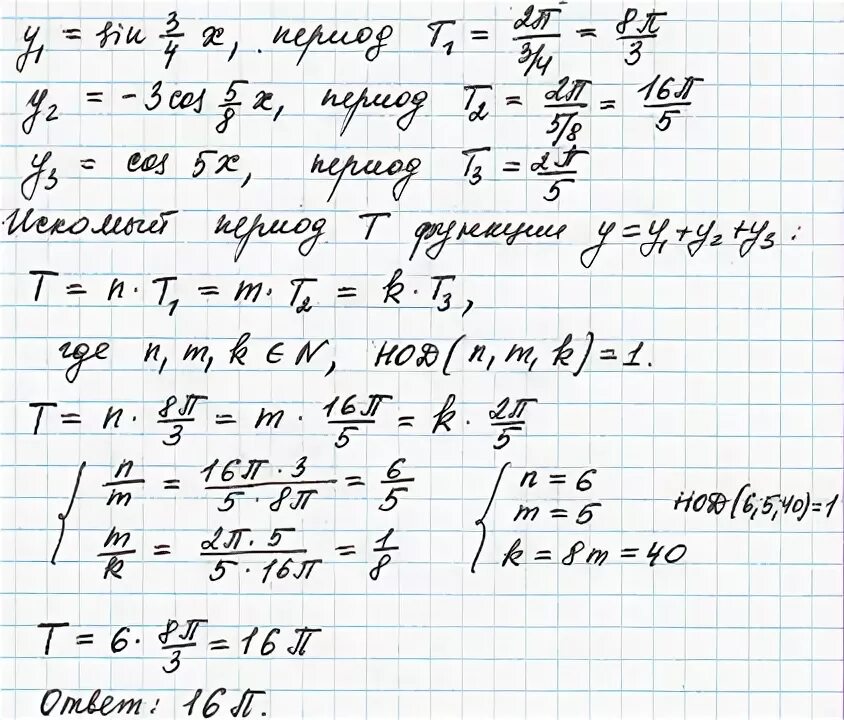 y₁ = sin 3/4 x, период T₁ = 2π/(3/4) = 8π/3
y₂ = -3cos 5/8 x, период T₂ = 2π/(5/8) = 16π/5
y₃ = cos 5x, период T₃ = 2π/5
Искомый период T функции y = y₁ + y₂ + y₃ :
T = n · T₁ = m · T₂ = k · T₃,
где n, m, k ∈ N, НОД(n, m, k) = 1.
T = n · 8π/3 = m · 16π/5 = k · 2π/5
{ n/m = (16π · 3)/(5 · 8π) = 6/5
m/k = (2π · 5)/(5 · 16π) = 1/8
{ n = 6
m = 5
k = 8m = 40
НОД(6,5,40)=1
T = 6 · 8π/3 = 16π
Ответ: 16π.